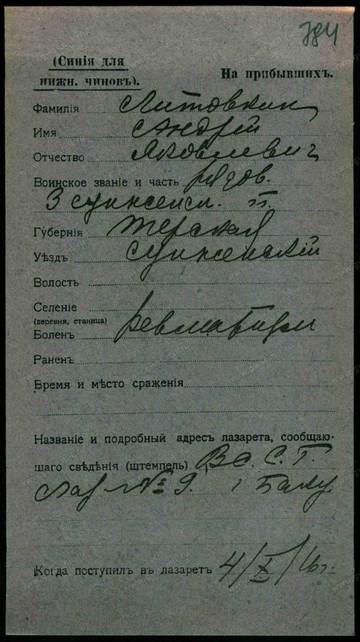 784
(Синія для
нижн. чиновъ).
На прибывшихъ.
Фамилія Литовкин
Имя Андрій
Отчество Яковлевич
Воинское званіе и часть рядов.
3 сунженск. п.
Губернія Терская
Уѣздъ Сунженскій
Волость
Селеніе
(деревня, станица)
Боленъ ревматизм
Раненъ
Время и мѣсто сраженія
Названіе и подробный адресъ лазарета, сообщаю-
щаго свѣдѣнія (штемпель) В. С. Г.
Лаз. № 9. г Баку
Когда поступилъ въ лазаретъ 4/X/16 г.